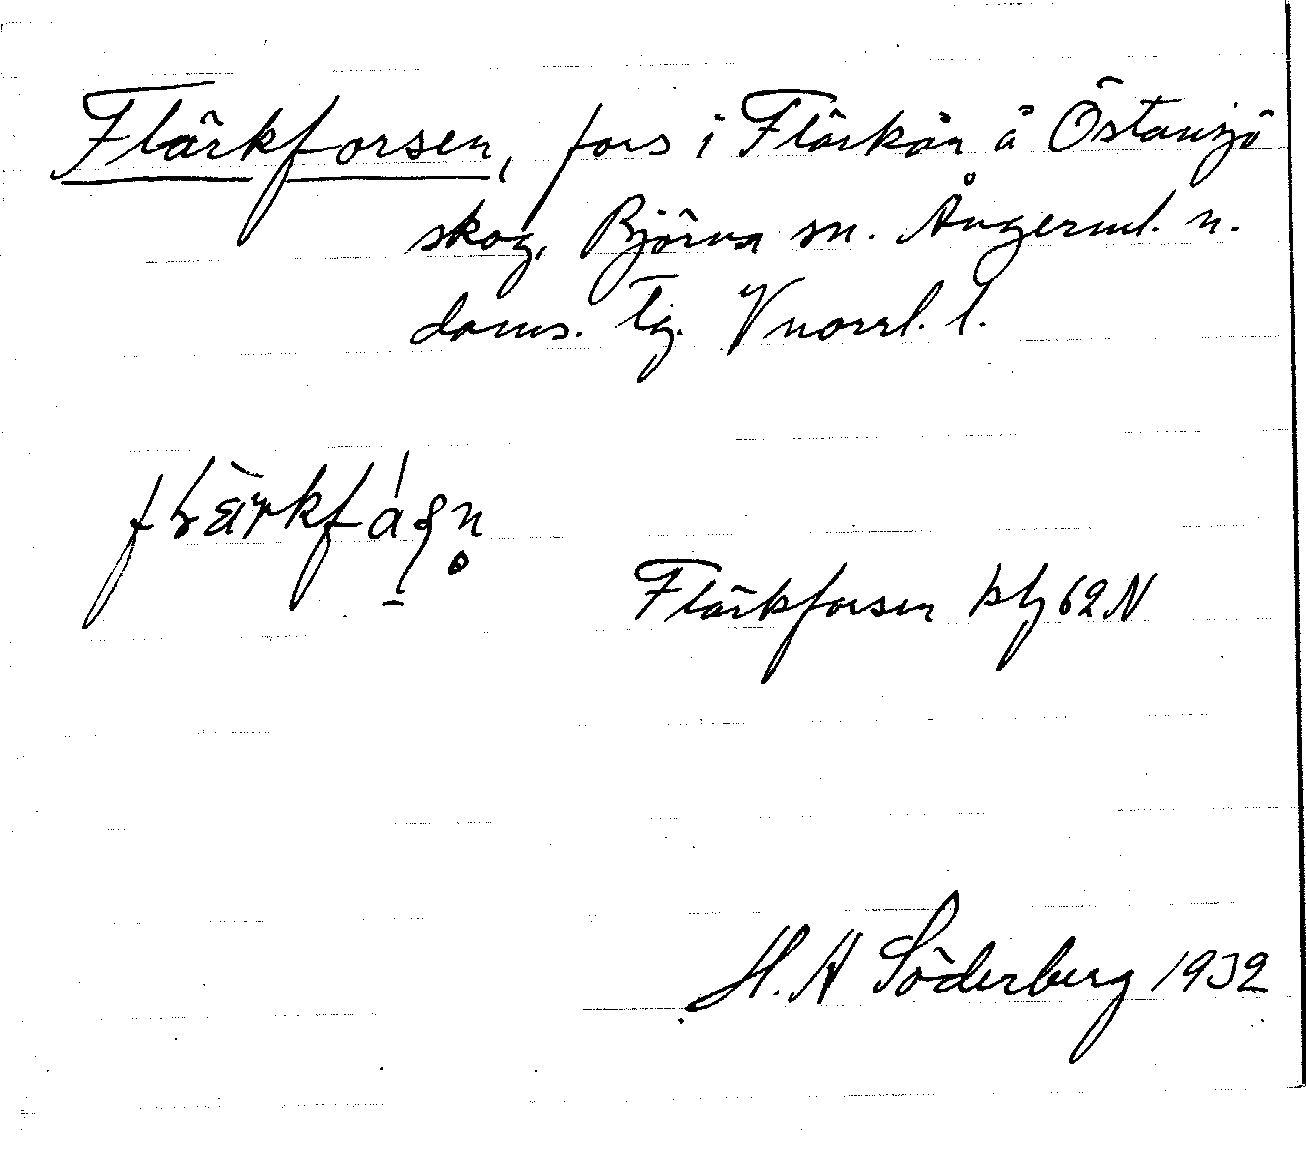 Flärkforsen, fors i Flärkån å Östansjö
skog, Björna sn. Ångerml. n.
doms. tg. Vnorrl. l.
Flärkforsen kbl 62 N
H. A Söderberg 1932